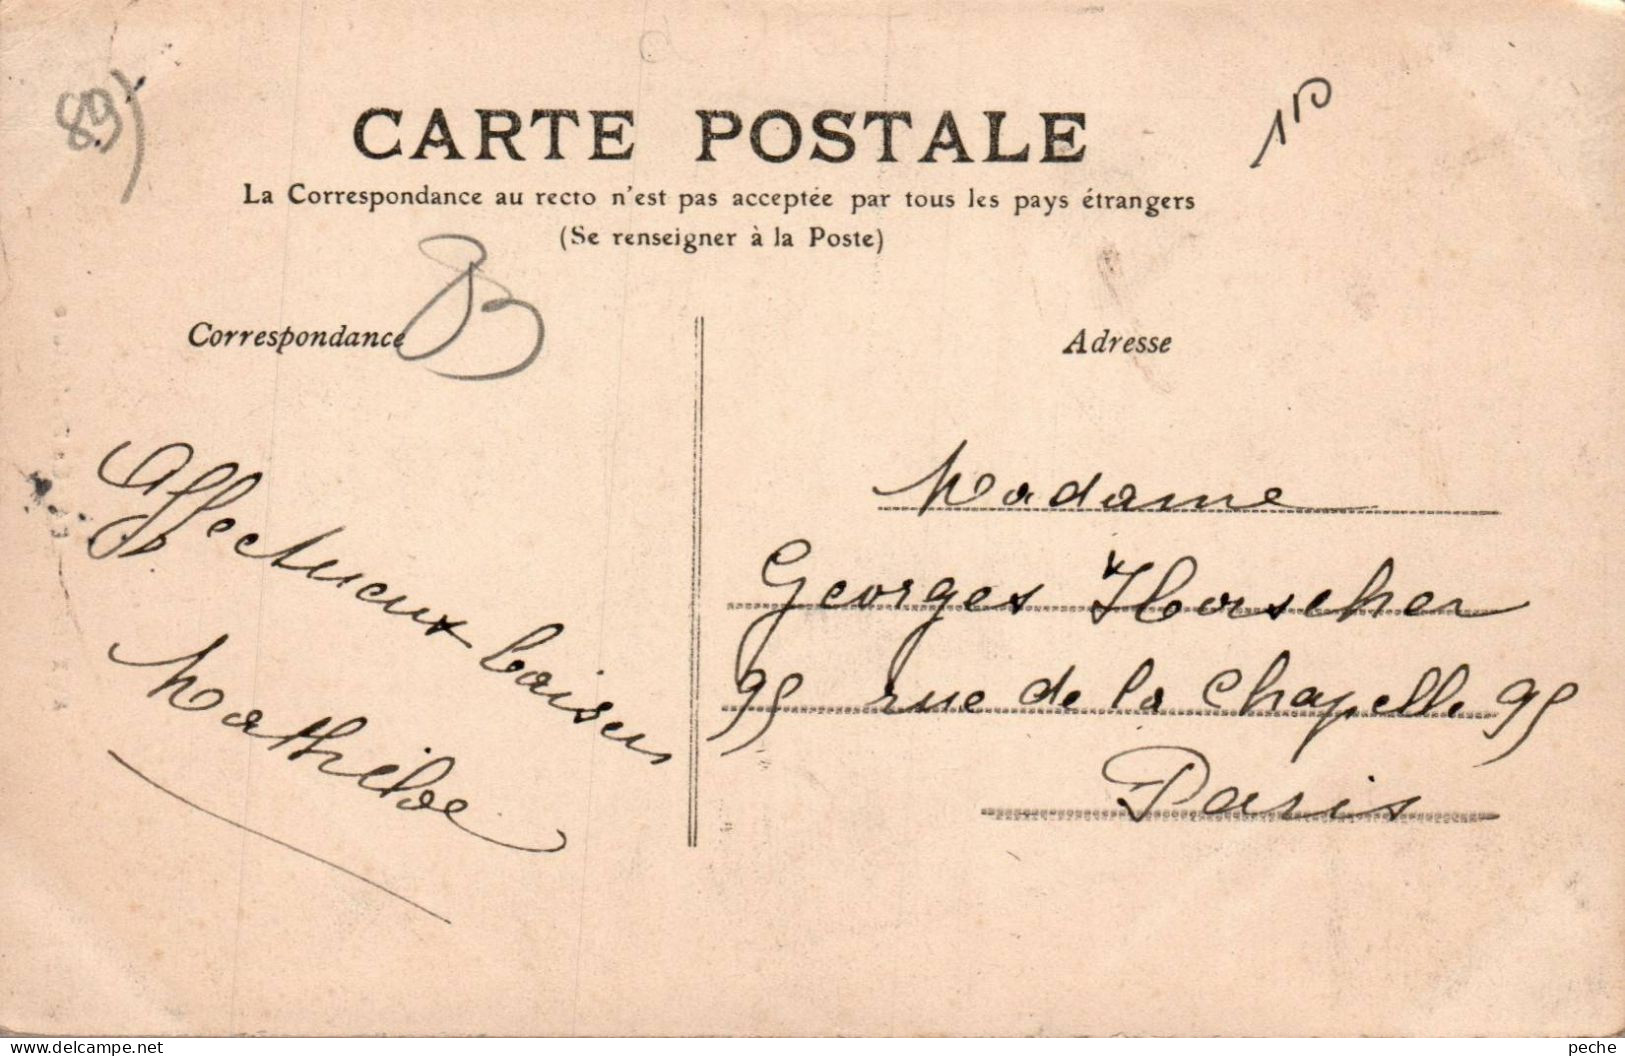 89)
CARTE POSTALE
La Correspondance au recto n'est pas acceptée par tous les pays étrangers
(Se renseigner à la Poste)
Correspondance
Affectueux baisers
Mathilde
Adresse
Madame
Georges Horscher
95 rue de la Chapelle 95
Paris
www.delcampe.net
peche